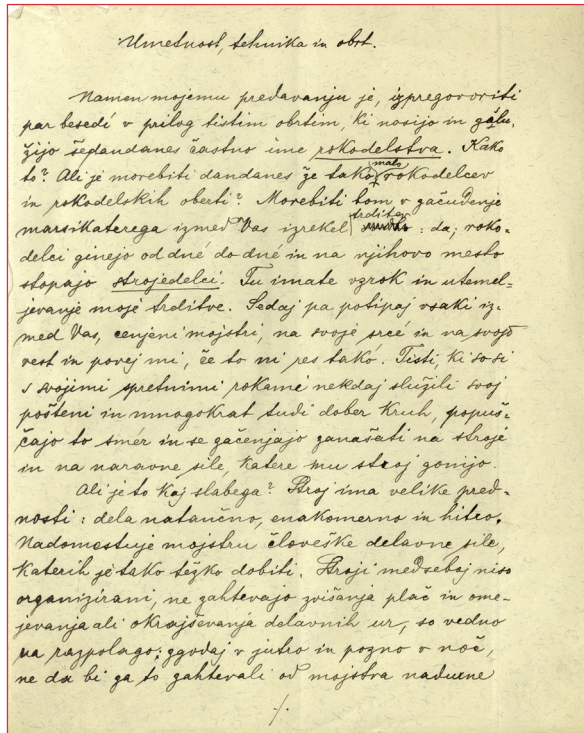 Umetnost, tehnika in obrt.
Namen mojemu predavanju je, izpregovoriti
par besedí v prilog tistim obrtim, ki nosijo in zaslu-
žijo šedandanes častno ime rokodelstva. Kako
to? Ali je morebiti dandanes že tako malo rokodelcev
in rokodelskih oberti? Morebiti bom v začudenje
marsikaterega izmed Vas izrekel trditev: da; roko-
delci ginejo od dné do dné in na njihovo mesto
stopajo strojedelci. Tu imate vzrok in utemel-
jevanje moje trditve. Sedaj pa potipaj vsaki iz-
med Vas, cenjeni mojstri, na svoje srce in na svojo
vest in povej mi, če to ni res tako. Tisti, ki so si
s svojimi spretnimi rokami nekdaj služili svoj
pošteni in mnogokrat tudi dober kruh, popuš-
čajo to smér in se začenjajo zanašati na stroje
in na naravne sile, katere mu stroj gonijo.
Ali je to kaj slabega? Stroj ima velike pred-
nosti: dela natančno, enakomerno in hitro.
Nadomestuje mojstru človeške delavne sile,
katerih je tako težko dobiti. Stroji medseboj niso
organizirani, ne zahtevajo zvišanja plač in ome-
jevanja ali okrajševanja delavnih ur, so vedno
na razpolago: zgodaj v jutro in pozno v noč,
ne da bi ga to zahtevali od mojstra nadurne
./.